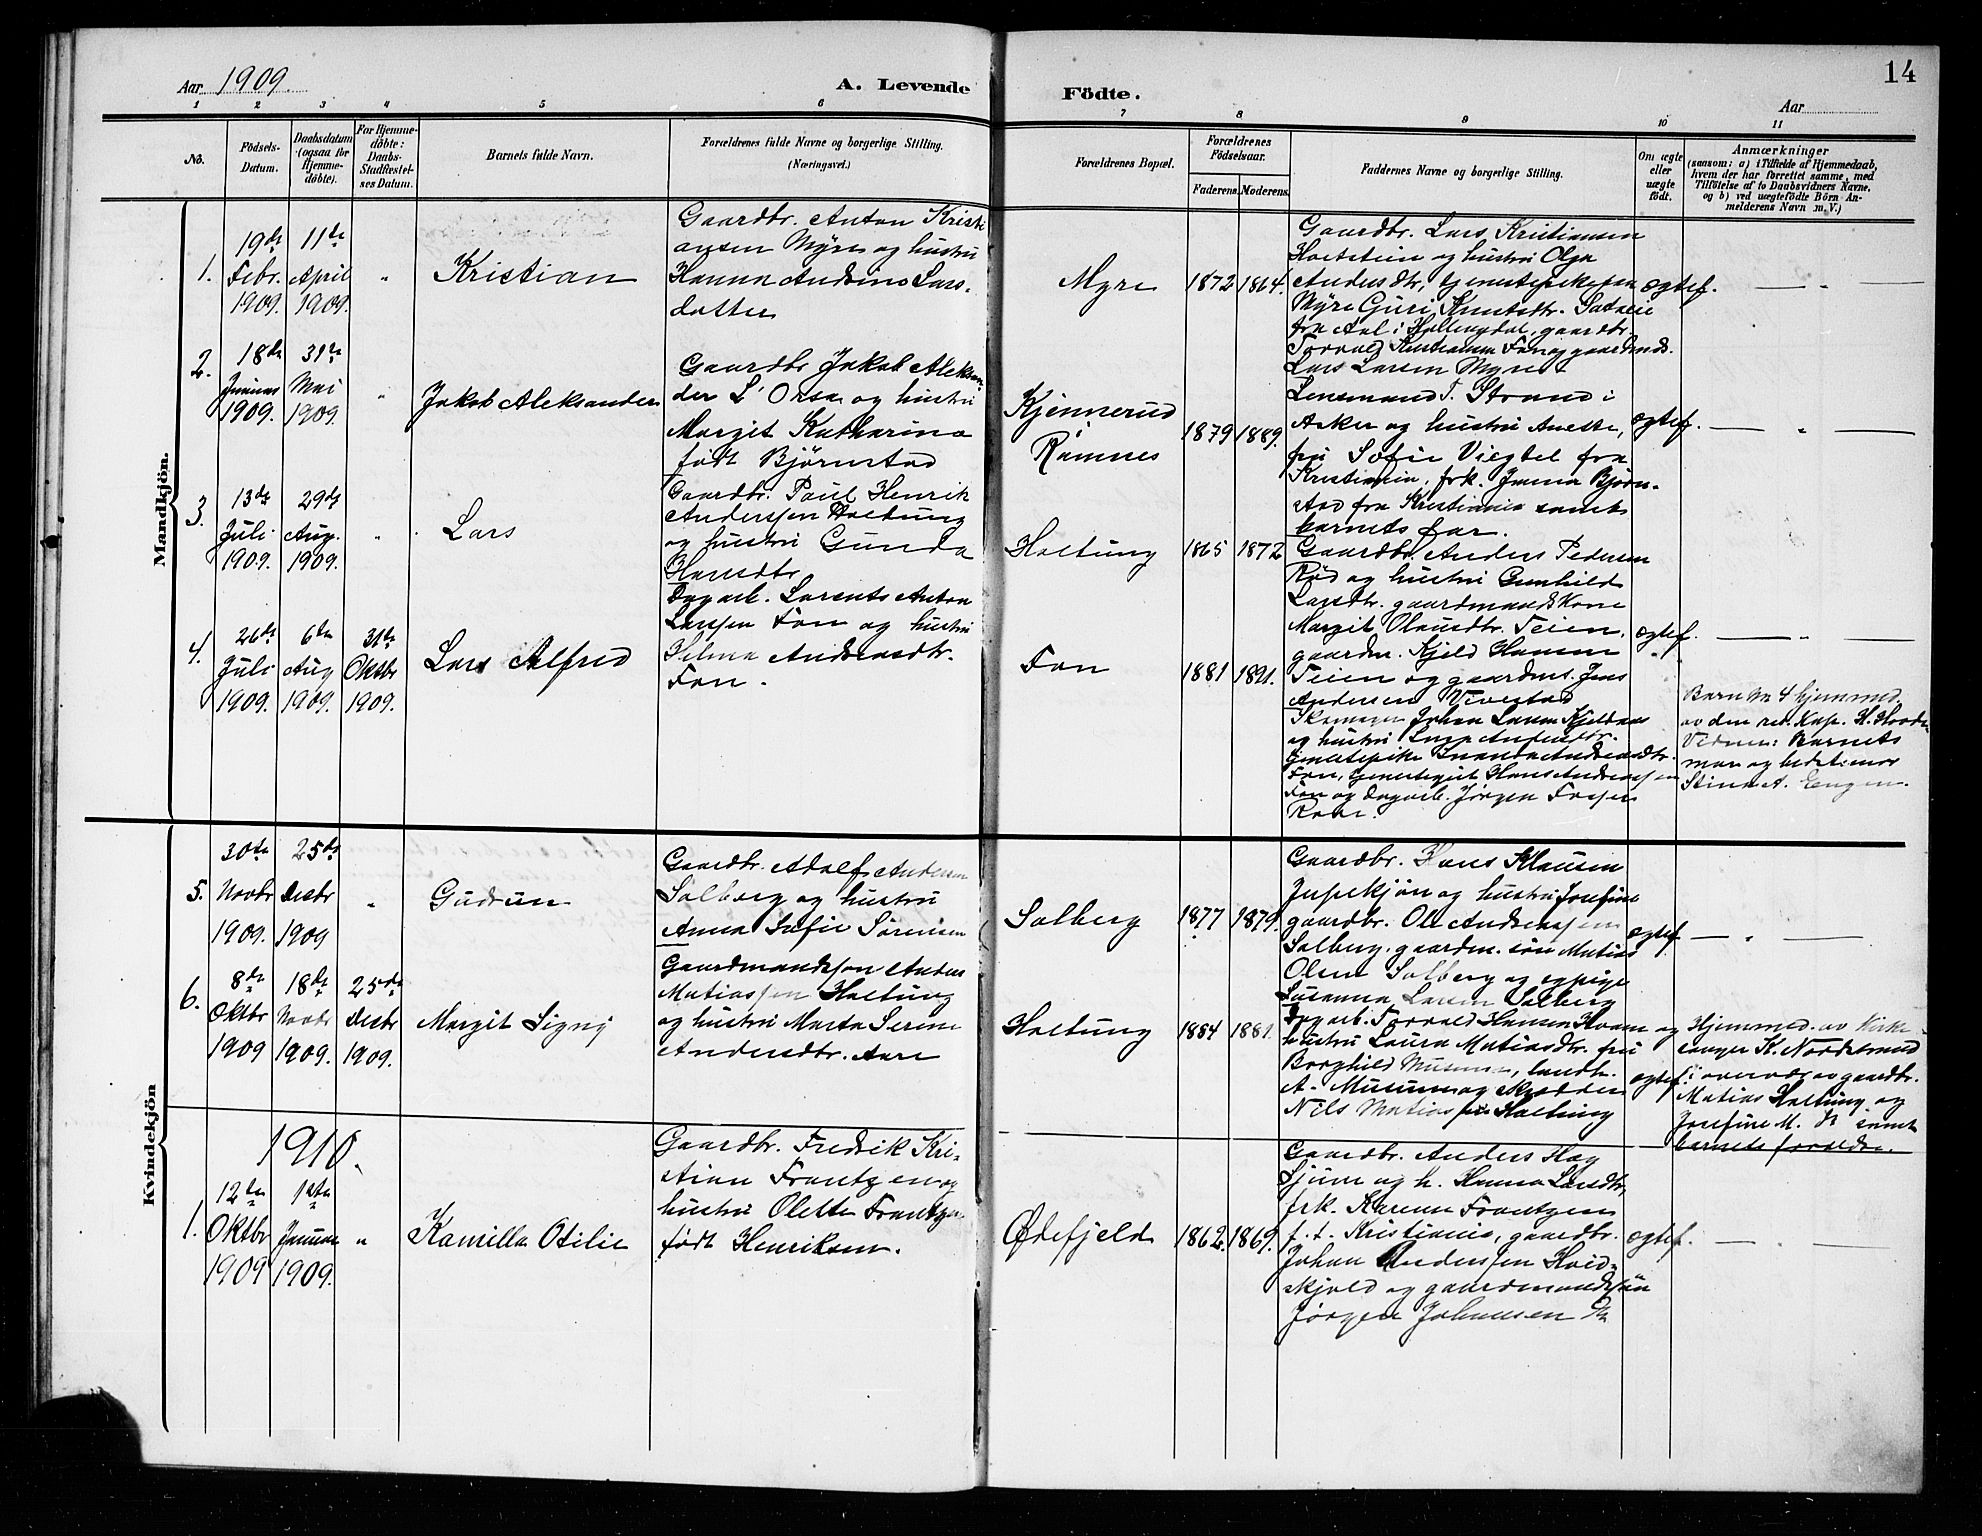 14
Aar 1909.
A. Levende Födte.
Aar
1 2 3 4 5 6 7 8 9 10 11
No.
Födsels-
Datum.
Daabsdatum
(ogsaa for
Hjemme-
döbte).
For Hjemme-
döbte:
Daabs-
Stadfæstel-
ses Datum.
Barnets fulde Navn.
Forældrenes fulde Navne og borgerlige Stilling.
(Næringsvei.)
Forældrenes Bopæl.
Forældrenes
Födselsaar.
Faderens. Moderens.
Faddernes Navne og borgerlige Stilling.
Om ægte
eller
uægte
födt.
Anmærkninger
(saasom: a) i Tilfælde af Hjemmedaab,
hvem der har forrettet samme, med
Tilföielse af to Daabsvidners Navne,
og b) ved uægtefödte Börn An-
melderens Navn m. V.)
Mandkjön.
1.
19de
Febr.
1909.
11te
April
1909.
"
Kristian
Gaardbr. Anton Kristi
ansen Myre og hustru
Hanna Andrine Lars-
datter
Myre
1872 1864.
Gaardbr. Lars Kristiansen
Holtstein og hustru Olga
Andersdtr, tjenestepike paa
Myre Guri Knutsdtr.
fra Aal i Hallingdal, gaardbr.
Torvald Kristiansen Fon og gaardmds.
Lars Larsen Myre
ægtef.
— " —
2.
18de
Januar
1909.
31te
Mai
1909.
"
Jakob Aleksander
Gaardbr Jakob Aleksan-
der L' Orsa og hustru
Margit Katharina
født Bjørnstad
Kjennerud
i
Ramnes
1879 1889.
Lensmand T. Strand i
Asker og hustru Anette,
fru Sofie fra
Kristiania, frk. Bjørn-
stad fra Kristiania samt
barnets far.
ægtef.
— " —
3.
13de
Juli
1909.
29de
Aug.
1909.
"
Lars
Gaardbr. Paul Henrik
Anderssen Holtung
og hustru Gunda
Hansdtr.
Holtung
1865 1872
Gaardbr. Anders Pedersen
Rød og hustru Gunhild
Larsdtr. gaardmandskone
Margit Olausdtr. Teien,
gaardm. Kjeld Hansen
Teien og gaardms. Jens
Andersen Vivestad
ægtef.
— " —
4.
26de
Juli
1909.
6te
Aug
1909.
31te
Oktbr
1909.
Lars Alfred
Dagarb. Lorents Anton
Larssen Fon og hustru
Hilma Andreasdtr.
Fon.
Fon
1881 1891.
Skomager Johan Larsen
og hustru
tjenestepike Andreasdtr.
Fon, tjenestegut Hans Andreassen
Fon og dagarb. Jørgen
"
Barn No 4 hjemmed.
av den res. Kap. H.
Vidner: Barnets
mor og bedstemor
Stina A. Engen.
Kvindekjön
5.
30te
Novbr
1909.
25de
Desbr
1909
"
Gudrun
Gaardbr. Adolf Andersen
Solberg og hustru
Anna Sofie Sørensen
Solberg
1877 1879.
Gaardbr. Hans Klausen
og hustru Josefine
gaardbr. Ole Andreassen
Solberg, gaardm. søn Matias
Olsen Solberg og sypige
Susanna Larsen Solberg
ægtef.
— " —
6.
8de
Oktbr
1909
18de
Novbr
1909.
25de
Desbr
1909.
Margit Signy
Gaardmandssøn Anders
Matiassen Holtung
og hustru Marta Serine
Andersdtr. Aare
Holtung
1884 1881
Dagarb. Torvald Hansen og
hustru Laura Matiasdtr. fru
Borghild landh.
A. og skrædder
Nils Holtung
ægtef.
Hjemmed. av Kirke-
sanger K. Nordstrand
i overvær av gaardbr.
Matias Holtung og
Josefine M. samt
barnets foreldre.
1910.
1.
12te
Oktbr
1909
1ste
Januar
1909.
"
Kamilla Otilie
Gaardbr. Fredrik Kri-
stian Frantzen og
hustru Olette Frantzen
født Henriksen.
Ødefjeld
1862. 1869.
Gaardbr. Anders Hag
og h. Hanna Larsdtr,
frk. Karenn Frantzen
f. t. Kristiania, gaardbr.
Johan Anderssen Hvid-
skjold og gaardmandssøn
Jørgen Johansen
ægtef.
— " —